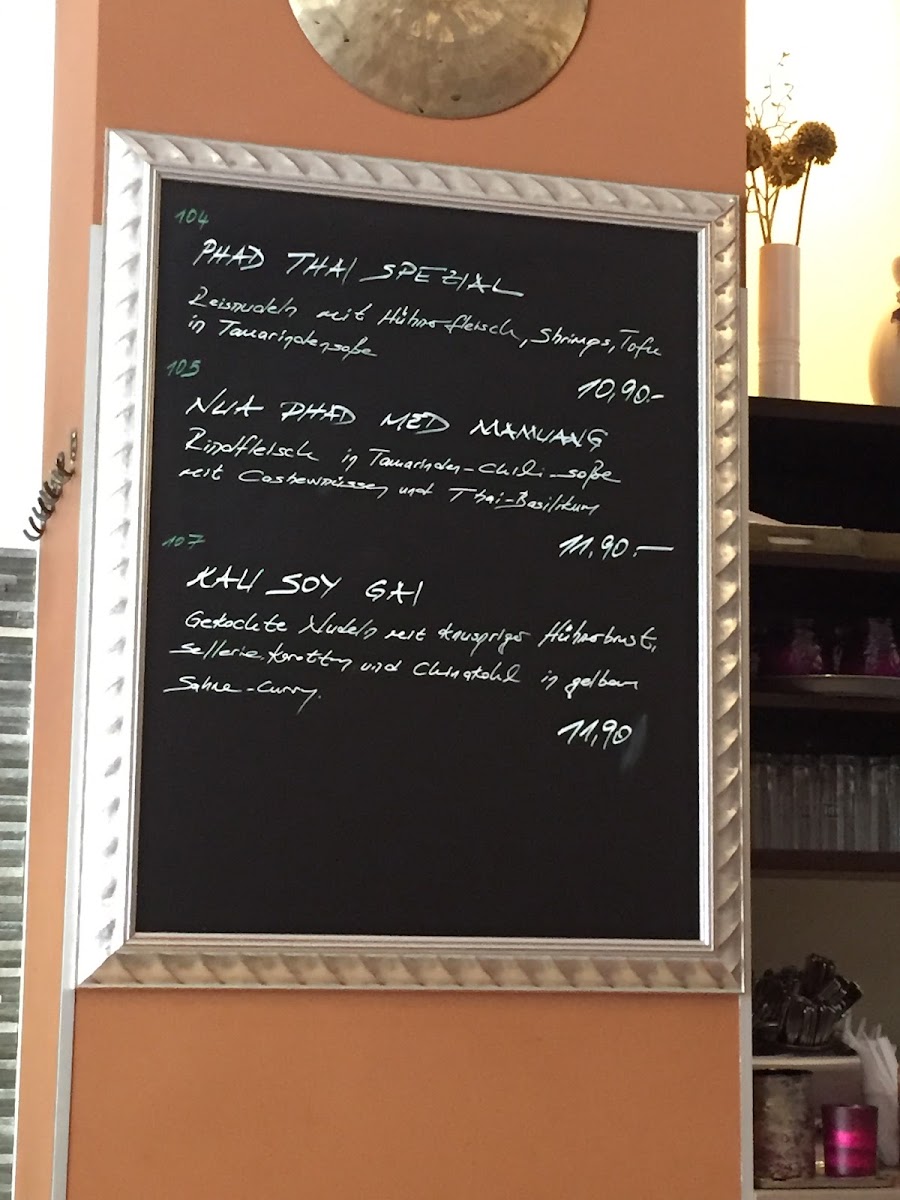 104
PHAD THAI SPEZIAL
Reisnudeln mit Hühnerfleisch, Shrimps, Tofu
in Tamarindensoße
10,90.-
105
NUA PHAD MED MAMUANG
Rindfleisch in Tamarinden-Chili-soße
mit Cashewnüssen und Thai-Basilikum
11,90.-
107
KAU SOY GAI
Gekochte Nudeln mit knuspriger Hühnerbrust,
Sellerie, Karotten und Chinakohl in gelbem
Sahne-Curry.
11,90